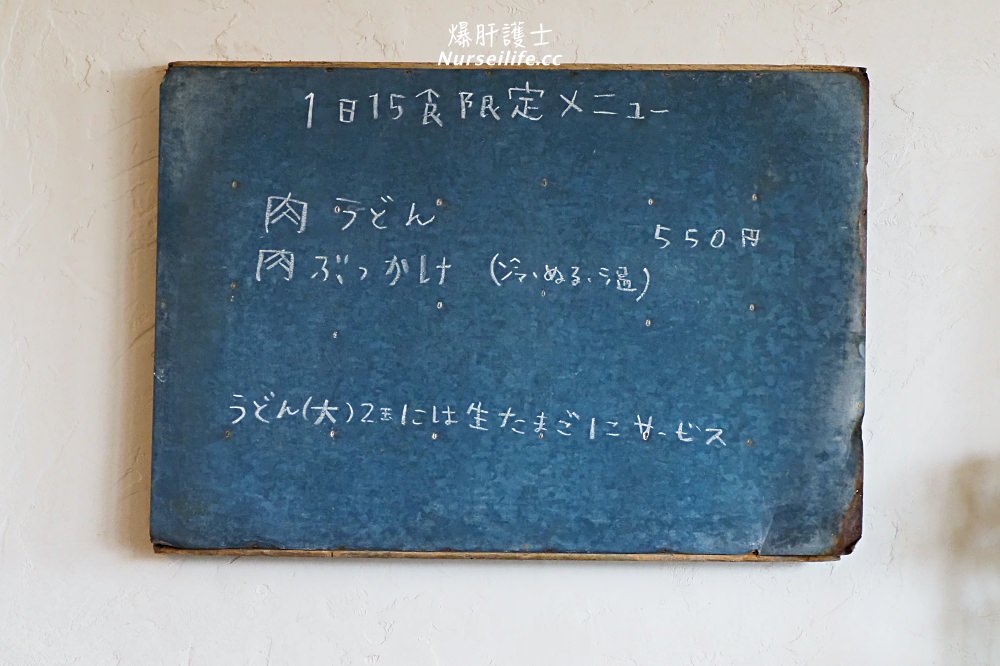 爆肝護士
Nurseilife.cc
1日15食限定メニュー
肉うどん
550円
肉ぶっかけ (冷、ぬる、温)
うどん(大)2玉には生たまごにサービス